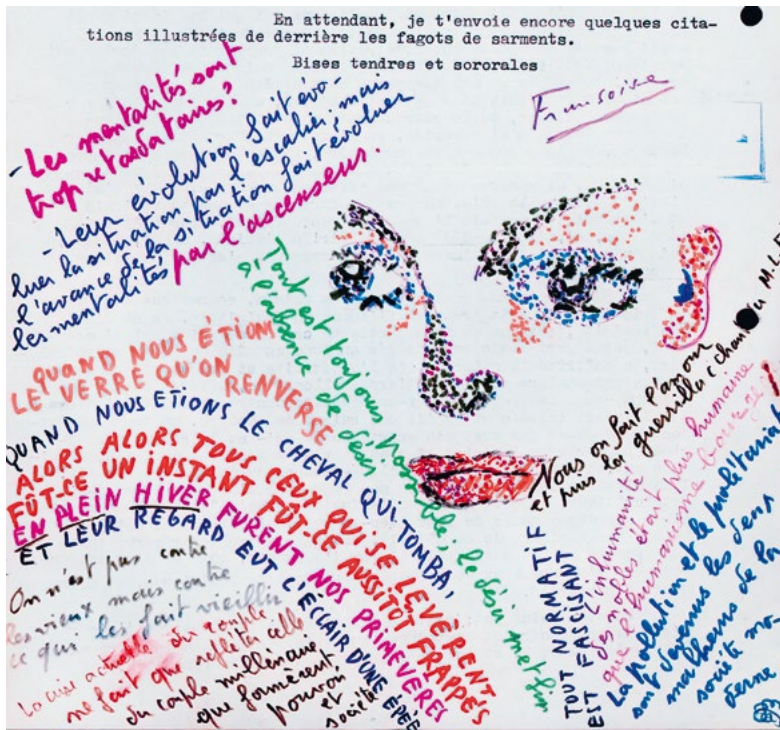 En attendant, je t'envoie encore quelques cita-
tions illustrées de derrière les fagots de sarments.
Bises tendres et sororales
Françoise
- Les mentalités sont
trop retardataires?
- Leur évolution fait évo-
luer la situation par l'escalier, mais
l'avance de la situation fait évoluer
les mentalités par l'ascenseur.
Tout est toujours possible; le désir met fin
à l'absence de désir
QUAND NOUS ÉTIONS
LE VERRE QU'ON RENVERSE
QUAND NOUS ETIONS LE CHEVAL QUI TOMBA,
ALORS ALORS TOUS CEUX QUI SE LEVÈRENT
FÛT-CE UN INSTANT FÛT-CE AUSSITÔT FRAPPÉS
EN PLEIN HIVER FURENT NOS PRIMEVÈRES
ET LEUR REGARD EUT L'ECLAIR D'UNE EPÉE
On n'est pas contre
les vieux mais contre
ce qui les fait vieillir
La crise actuelle du couple
ne fait que refléter celle
du couple millénaire
que formèrent
pouvoir
et
société
Nous on fait l'amour
et puis la guerrilla (chant du MLF
TOUT NORMATIF
EST FASCISANT
L'inhumanité
des nobles était plus humaine
que l'humanisme bourgeois
La pollution et le prolétariat
sont devenus les deux
malheurs de la
société mo-
derne